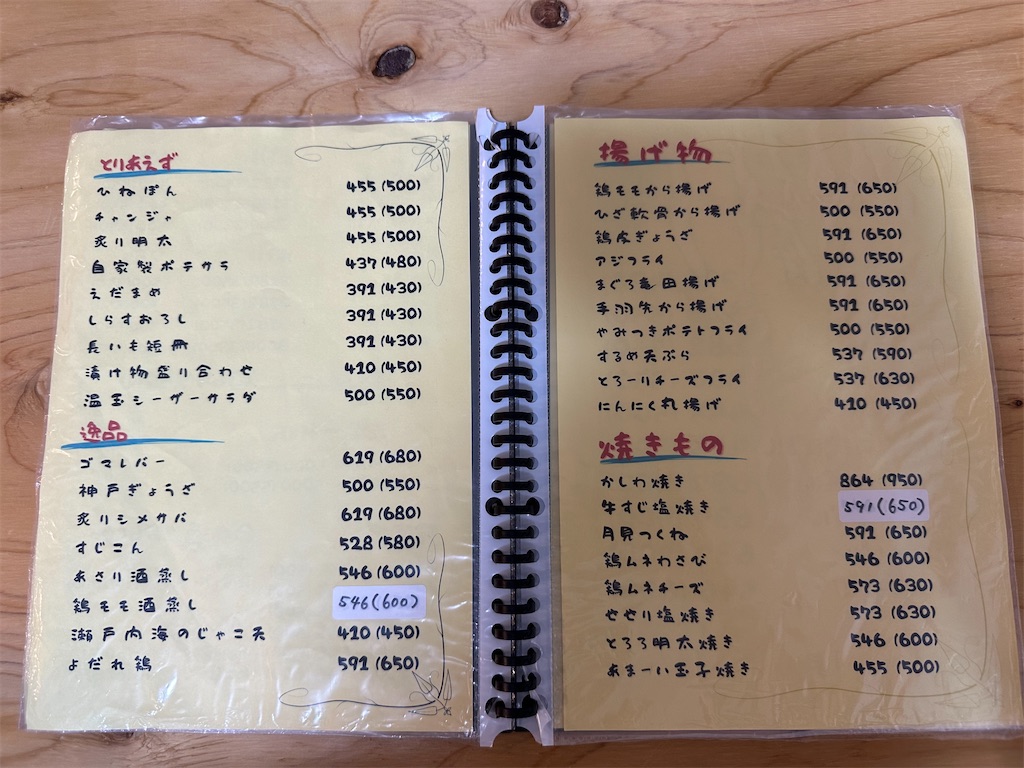 とりあえず
ひねぽん 455(500)
チャンジャ 455(500)
炙り明太 455(500)
自家製ポテサラ 437(480)
えだまめ 391(430)
しらすおろし 391(430)
長いも短冊 391(430)
漬け物盛り合わせ 410(450)
温玉シーザーサラダ 500(550)
逸品
ゴマレバー 619(680)
神戸ぎょうざ 500(550)
炙りシメサバ 619(680)
すじこん 528(580)
あさり酒蒸し 546(600)
鶏モモ酒蒸し 546(600)
瀬戸内海のじゃこ天 410(450)
よだれ鶏 591(650)
揚げ物
鶏モモから揚げ 591(650)
ひざ軟骨から揚げ 500(550)
鶏皮ぎょうざ 591(650)
アジフライ 500(550)
まぐろ竜田揚げ 591(650)
手羽先から揚げ 591(650)
やみつきポテトフライ 500(550)
するめ天ぷら 537(590)
とろーりチーズフライ 537(630)
にんにく丸揚げ 410(450)
焼きもの
かしわ焼き 864(950)
牛すじ塩焼き 591(650)
月見つくね 591(650)
鶏ムネわさび 546(600)
鶏ムネチーズ 573(630)
せせり塩焼き 573(630)
とろろ明太焼き 546(600)
あまーい玉子焼き 455(500)